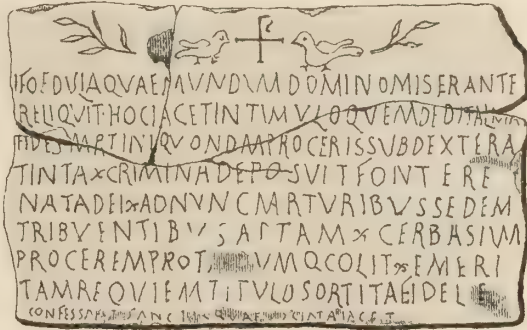 FOEDVLAQVAEMVNDVMDOMINOMISERANTE
RELIQVIT·HOCIACETINTVMVLOQVEMDEDITALMA
FIDESMARTINIQVONDAMPROCERISSVBDEXTERA
TINTA CRIMINADEPOSVITFONTERE
NATADEI ADNVNCMARTVRIBVSSEDEM
TRIBVENTIBVSAPTAM CERBASIVM
PROCEREMPROT VMQCOLIT EMERI
TAMREQVIEMTITVLOSORTITAFIDELE
CONFESSA IACET